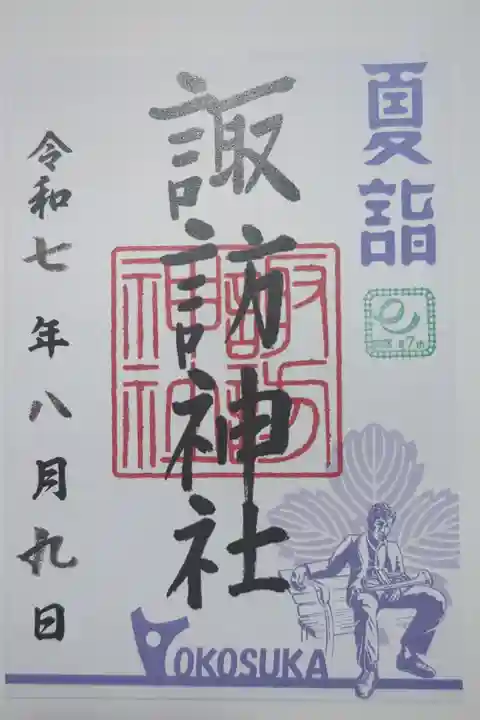 夏詣
7th
諏訪神社
諏訪神社
令和七年八月九日
YOKOSUKA